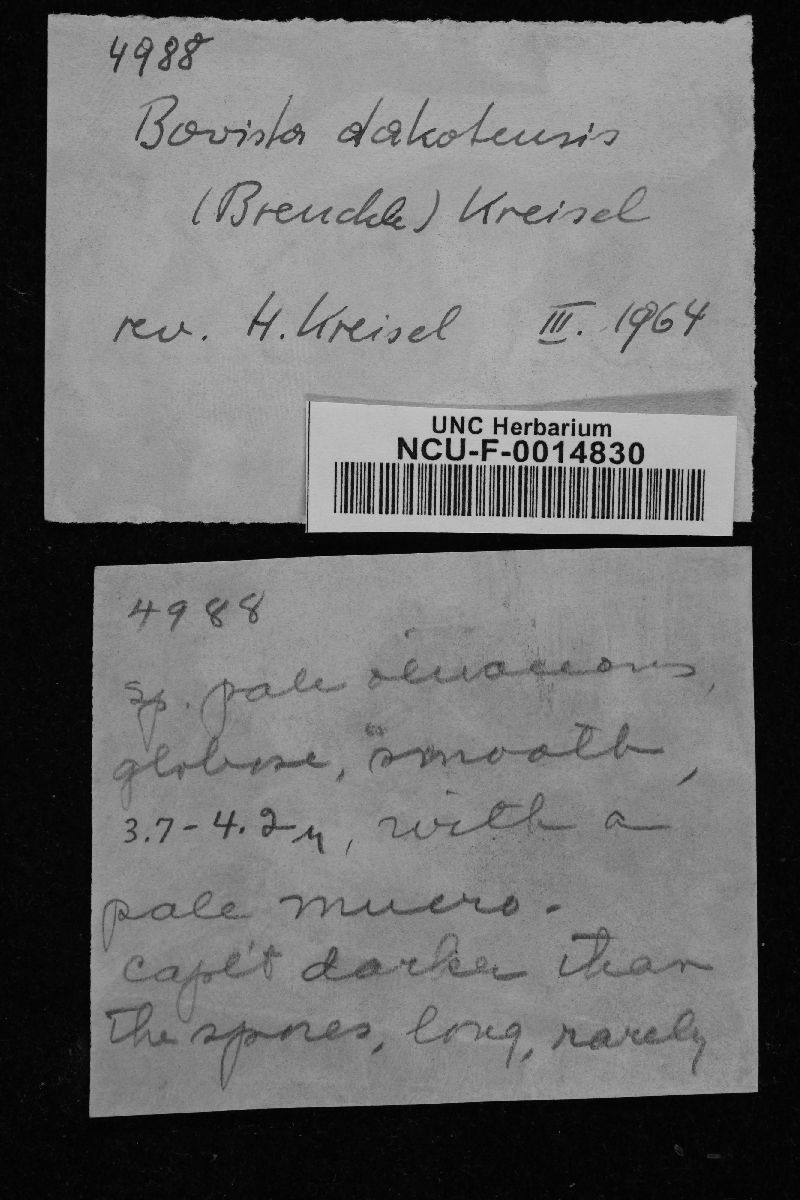 4988
Bovista dakotensis
(Brenckle) Kreisel
rev. H. Kreisel III. 1964
UNC Herbarium
NCU-F-0014830
4988
sp. pale olivaceous,
globose, smooth,
3.7-4.2 μ, with a
pale mucro.
capl't darker than
the spores, long, rarely